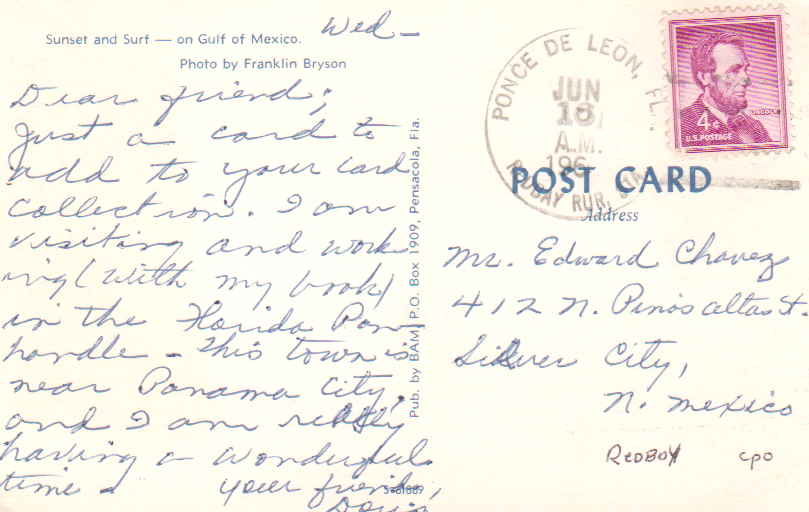 Sunset and Surf — on Gulf of Mexico.
Photo by Franklin Bryson
Wed —
Dear friend;
Just a card to
add to your card
collection. I am
visiting and work
ing (with my book)
in the Florida Pan
handle — This town is
near Panama City,
and I am really
having a wonderful
time — your friend,
Pub. by BAM, P.O. Box 1909, Pensacola, Fla.
PONCE DE LEON, FL
JUN
A.M.
196
RUR. STA
LINCOLN
4¢
U.S. POSTAGE
POST CARD
Address
Mr. Edward Chavez
412 N. Pinos altas St.
Silver City,
N. Mexico
REDBOY CPO